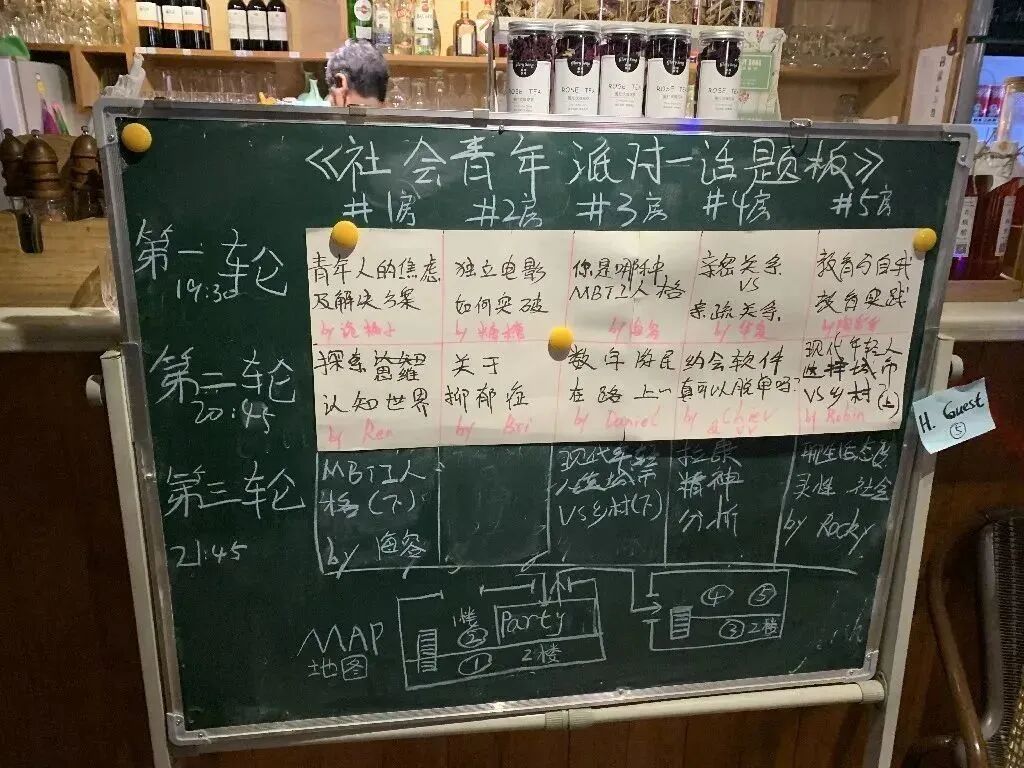 ROSE TEA
ROSE TEA
ROSE TEA
ROSE TEA
ROSE TEA
《社会青年派对-话题板》
#1房 #2房 #3房 #4房 #5房
第一轮
19:30
青年人的焦虑
及解决方案
独立电影
如何突破
by 糖糖
你是哪种
MBTI人格
by 海爷
亲密关系
VS
亲疏关系
教育与自我
教育实践
第二轮
20:45
探索
思维
认知世界
by Ren
关于
抑郁症
by Bri
数字游民
在路上
by Daniel
约会软件
真可以脱单吗?
现代年轻人
选择城市
VS乡村(上)
by Robin
第三轮
21:45
MBTI人
格(下)
by 海爷
现代年轻
人选城市
VS乡村(下)
拉康
精神
分析
灵性 社会
by Rocky
H. Guest
⑤
MAP
地图
1楼
②
Party
①
2楼
④ ⑤
③ 2楼